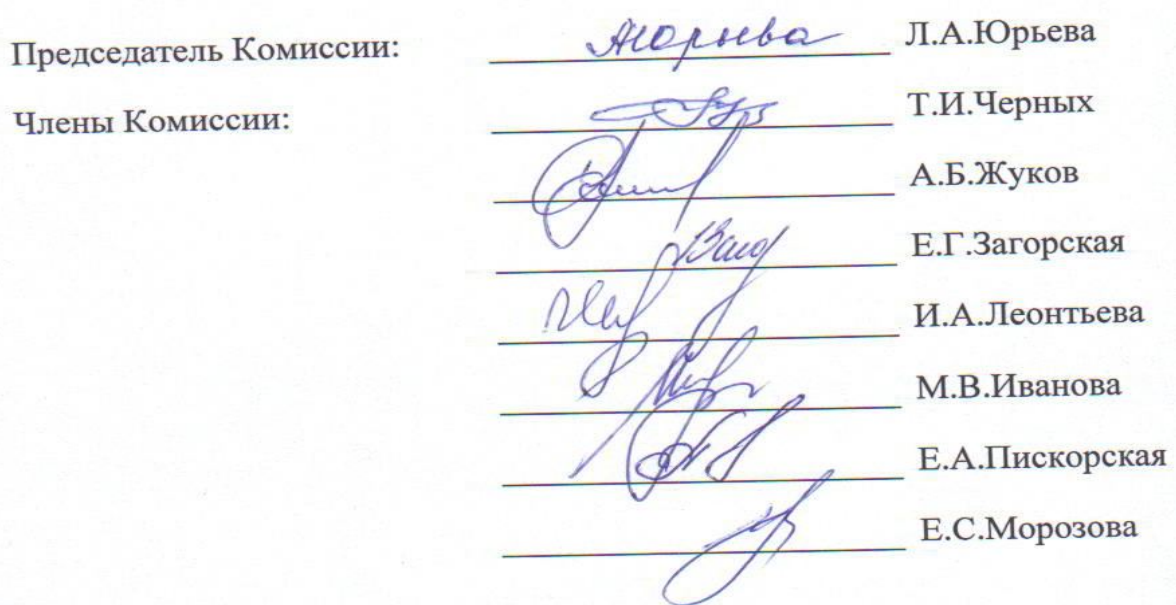 Председатель Комиссии: Юрьева Л.А.Юрьева
Члены Комиссии: Т.И.Черных
А.Б.Жуков
Е.Г.Загорская
И.А.Леонтьева
М.В.Иванова
Е.А.Пискорская
Е.С.Морозова